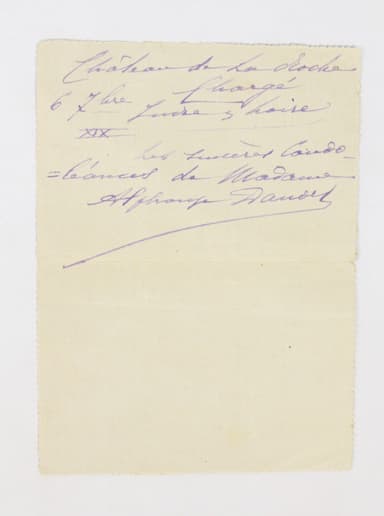 Château de La Roche
Chargé
6 7bre Indre & Loire
XIX
Les sincères Condo-
=léances de Madame
Alphonse Daudet